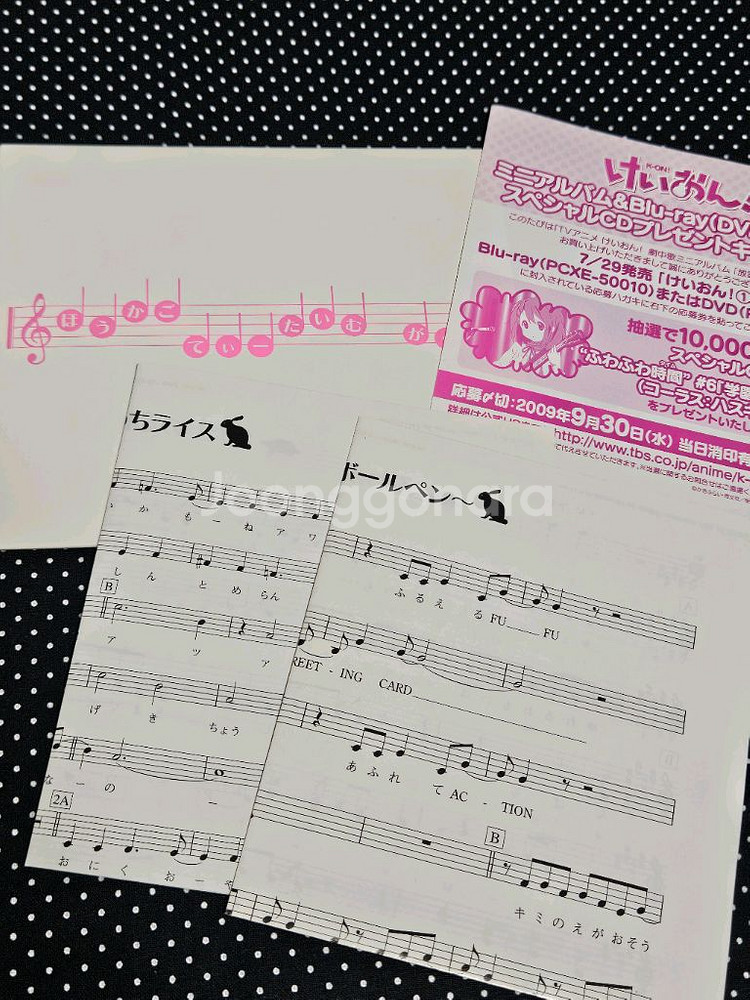 ほうかご
てぃーたいむ
が
K-ON!
けいおん
ミニアルバム&Blu-ray(DV
スペシャルCDプレゼントキ
このたびはTVアニメ「けいおん!」劇中歌ミニアルバム「放
お買い上げいただきまして誠にありがとうござ
7/29発売「けいおん!①
Blu-ray(PCXE-50010)またはDVD(P
に封入されている応募ハガキに右下の応募券を貼って
抽選で10,000
スペシャル
“ふわふわ時間” #6「学園
(コーラス:ハス
をプレゼントいたし
応募〆切:2009年9月30日(水) 当日消印有
詳細は公式
http://www.tbs.co.jp/anime/k-
Jeonggonara
ちライス
かもーねアワ
しんとめらん
B
アツア
げきちょう
なーのー
2A
おにくおーや
ボールペン〜
ふるえるFU___FU
REET - ING CARD
あふれてAC - TION
B
キミのえがおそう